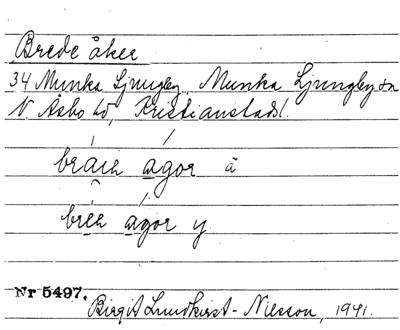 Brede åker
34 Munka Ljungby, Munka Ljungby sn
N Åsbo hd, Kristianstads l.
agor ä
agor y
Nr 5497.
Birgit Lundkvist-Nilsson, 1941.